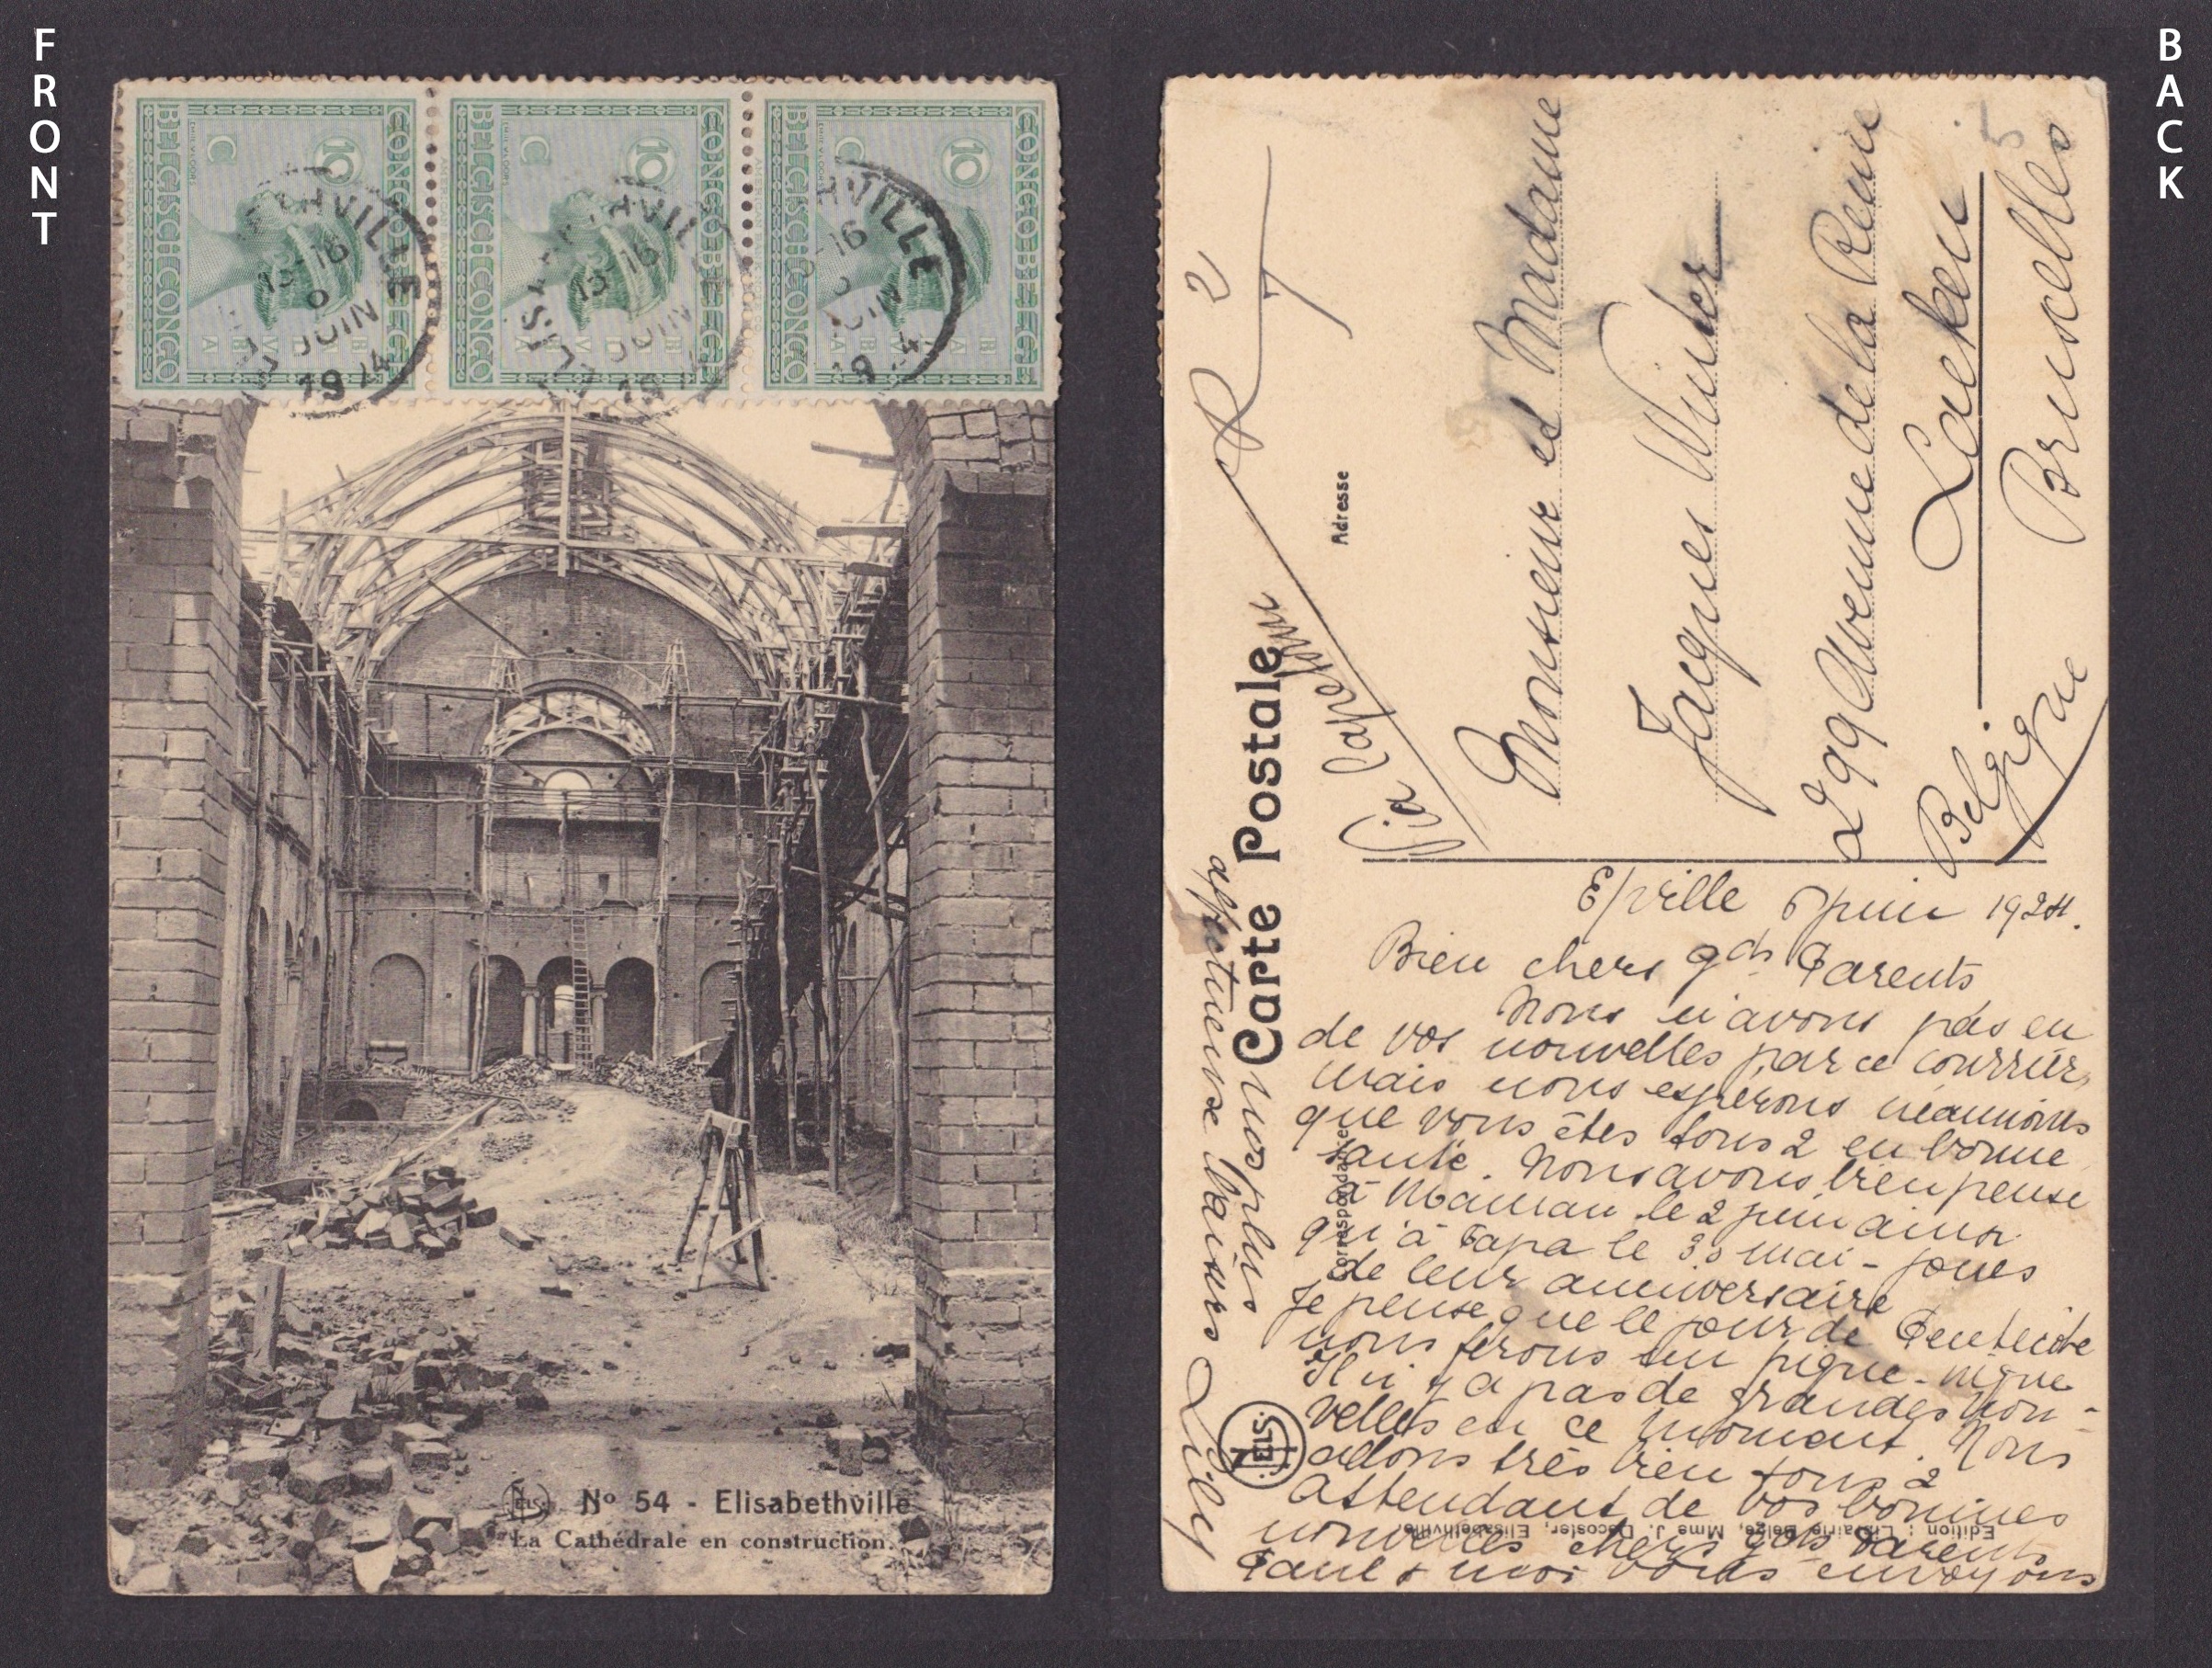 FRONT
BACK
CONGO BELGE
10
C
BELGISCH CONGO
CONGO BELGE
10
C
BELGISCH CONGO
CONGO BELGE
10
BELGISCH CONGO
13-16
JUIN
NELS
Nº 54 - Elisabethville
La Cathédrale en construction.
Carte Postale
Adresse
Correspondance
Via Capetown
Monsieur et Madame
Jacques Winter
299 Avenue de la Reine
Laeken
Bruxelles
Belgique
E/ville 6 juin 1924.
Bien chers gds Parents
Nous n'avons pas eu
de vos nouvelles par ce courrier,
mais nous espérons néanmoins
que vous êtes tous 2 en bonne
santé. Nous avons bien pensé
à Maman le 2 juin ainsi
qu'à Papa le 30 mai - jours
de leur anniversaire
Je pense que le jour de Pentecôte
nous ferons un pique-nique
Il n'y a pas de grandes nou-
velles en ce moment. Nous
allons très bien tous 2
Attendant de vos bonnes
nouvelles chers gds parents
Paul & moi vous envoyons
nos plus
affectueux baisers
NELS
Edition : Librairie Belge, Mme J. Decoster, Elisabethville